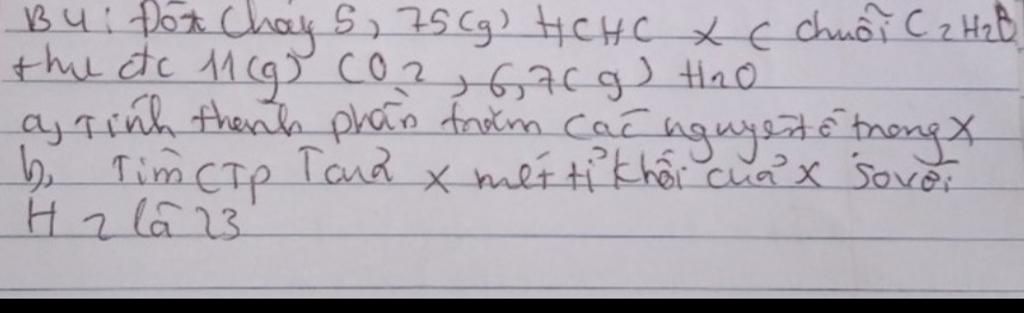 B4: Đốt cháy 5,75(g) HCHC X ( chuỗi C2H2O
thu đc 11(g) CO2, 6,7(g) H2O
a, Tính thành phần trăm các nguyên tố trong X
b, Tìm CTPT của X biết tỉ khối của X so với
H2 là 23